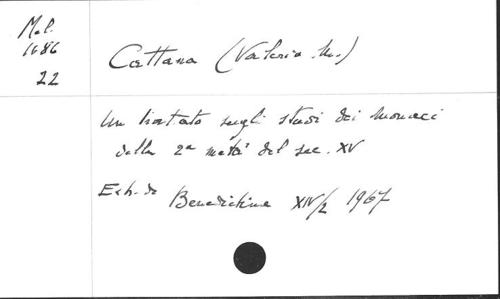 Mel.
1086
22
Cattana (Valerio M.)
Un trattato sugli studi dei monaci
della 2a metà del sec. XV
Estr. da Benedictina XIV/2 1967